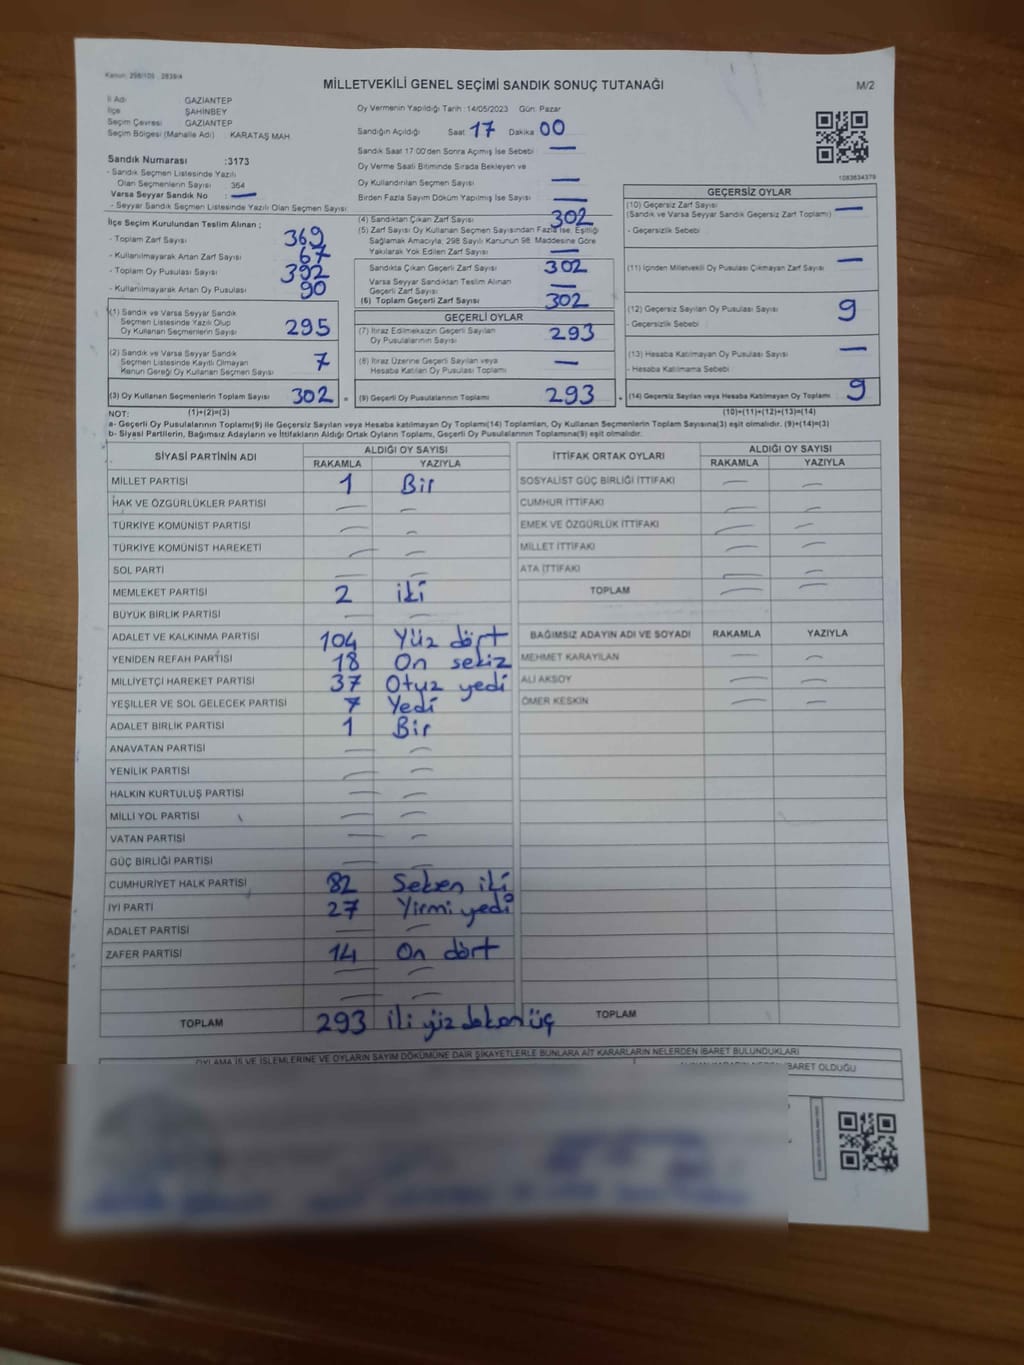 Kanun: 298/105 , 2839/4
MİLLETVEKİLİ GENEL SEÇİMİ SANDIK SONUÇ TUTANAĞI
M/2
İl Adı GAZİANTEP
İlçe ŞAHİNBEY
Seçim Çevresi GAZİANTEP
Seçim Bölgesi (Mahalle Adı) KARATAŞ MAH
Oy Vermenin Yapıldığı Tarih :14/05/2023 Gün: Pazar
Sandığın Açıldığı Saat 17 Dakika 00
Sandık Saat 17:00'den Sonra Açımış İse Sebebi —
Oy Verme Saati Bitiminde Sırada Bekleyen ve
Oy Kullandırılan Seçmen Sayısı —
Birden Fazla Sayım Döküm Yapılmış İse Sayısı —
1083634379
Sandık Numarası :3173
- Sandık Seçmen Listesinde Yazılı
Olan Seçmenlerin Sayısı : 364
Varsa Seyyar Sandık No : —
- Seyyar Sandık Seçmen Listesinde Yazılı Olan Seçmen Sayısı
İlçe Seçim Kurulundan Teslim Alınan ;
- Toplam Zarf Sayısı 369
- Kullanılmayarak Artan Zarf Sayısı 67
- Toplam Oy Pusulası Sayısı 392
- Kullanılmayarak Artan Oy Pusulası 90
(1) Sandık ve Varsa Seyyar Sandık
Seçmen Listesinde Yazılı Olup
Oy Kullanan Seçmenlerin Sayısı 295
(2) Sandık ve Varsa Seyyar Sandık
Seçmen Listesinde Kayıtlı Olmayan
Kanun Gereği Oy Kullanan Seçmen Sayısı 7
(3) Oy Kullanan Seçmenlerin Toplam Sayısı 302
(4) Sandıktan Çıkan Zarf Sayısı 302
(5) Zarf Sayısı Oy Kullanan Seçmen Sayısından Fazla İse, Eşitliği
Sağlamak Amacıyla; 298 Sayılı Kanunun 98. Maddesine Göre
Yakılarak Yok Edilen Zarf Sayısı —
Sandıkta Çıkan Geçerli Zarf Sayısı 302
Varsa Seyyar Sandıktan Teslim Alınan
Geçerli Zarf Sayısı —
(6) Toplam Geçerli Zarf Sayısı 302
GEÇERLİ OYLAR
(7) İtiraz Edilmeksizin Geçerli Sayılan
Oy Pusulalarının Sayısı 293
(8) İtiraz Üzerine Geçerli Sayılan veya
Hesaba Katılan Oy Pusulası Toplamı —
(9) Geçerli Oy Pusulalarının Toplamı 293
GEÇERSİZ OYLAR
(10) Geçersiz Zarf Sayısı —
(Sandık ve Varsa Seyyar Sandık Geçersiz Zarf Toplamı)
- Geçersizlik Sebebi
(11) İçinden Milletvekili Oy Pusulası Çıkmayan Zarf Sayısı —
(12) Geçersiz Sayılan Oy Pusulası Sayısı 9
- Geçersizlik Sebebi
(13) Hesaba Katılmayan Oy Pusulası Sayısı —
- Hesaba Katılmama Sebebi
(14) Geçersiz Sayılan veya Hesaba Katılmayan Oy Toplamı 9
NOT: (1)+(2)=(3) (10)+(11)+(12)+(13)=(14)
a- Geçerli Oy Pusulalarının Toplamı(9) ile Geçersiz Sayılan veya Hesaba katılmayan Oy Toplamı(14) Toplamları, Oy Kullanan Seçmenlerin Toplam Sayısına(3) eşit olmalıdır. (9)+(14)=(3)
b- Siyasi Partilerin, Bağımsız Adayların ve İttifakların Aldığı Ortak Oyların Toplamı, Geçerli Oy Pusulalarının Toplamına(9) eşit olmalıdır.
SİYASİ PARTİNİN ADI ALDIĞI OY SAYISI
RAKAMLA YAZIYLA
MİLLET PARTİSİ 1 Bir
HAK VE ÖZGÜRLÜKLER PARTİSİ — —
TÜRKİYE KOMÜNİST PARTİSİ — —
TÜRKİYE KOMÜNİST HAREKETİ — —
SOL PARTİ — —
MEMLEKET PARTİSİ 2 iki
BÜYÜK BİRLİK PARTİSİ — —
ADALET VE KALKINMA PARTİSİ 104 Yüz dört
YENİDEN REFAH PARTİSİ 18 On sekiz
MİLLİYETÇİ HAREKET PARTİSİ 37 Otuz yedi
YEŞİLLER VE SOL GELECEK PARTİSİ 7 Yedi
ADALET BİRLİK PARTİSİ 1 Bir
ANAVATAN PARTİSİ — —
YENİLİK PARTİSİ — —
HALKIN KURTULUŞ PARTİSİ — —
MİLLİ YOL PARTİSİ — —
VATAN PARTİSİ — —
GÜÇ BİRLİĞİ PARTİSİ — —
CUMHURİYET HALK PARTİSİ 82 Seksen iki
İYİ PARTİ 27 Yirmi yedi
ADALET PARTİSİ — —
ZAFER PARTİSİ 14 On dört
— —
— —
TOPLAM 293 iki yüz doksan üç
İTTİFAK ORTAK OYLARI ALDIĞI OY SAYISI
RAKAMLA YAZIYLA
SOSYALİST GÜÇ BİRLİĞİ İTTİFAKI — —
CUMHUR İTTİFAKI — —
EMEK VE ÖZGÜRLÜK İTTİFAKI — —
MİLLET İTTİFAKI — —
ATA İTTİFAKI — —
TOPLAM — —
BAĞIMSIZ ADAYIN ADI VE SOYADI RAKAMLA YAZIYLA
MEHMET KARAYILAN — —
ALİ AKSOY — —
ÖMER KESKİN — —
TOPLAM
OYLAMA İŞ VE İŞLEMLERİNE VE OYLARIN SAYIM DÖKÜMÜNE DAİR ŞİKAYETLERLE BUNLARA AİT KARARLARIN NELERDEN İBARET BULUNDUKLARI
İBARET OLDUĞU